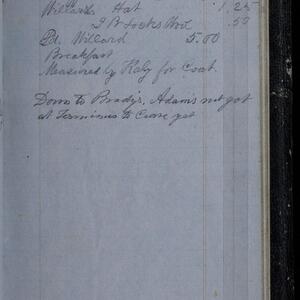 Willards Hat 1.25
J B Locks Wood .50
Pd. Willard 5.00
Breakfast
Measured by Kaly for Coat.
Down to Brady's, Adams not got
at Terminus to Crane yet